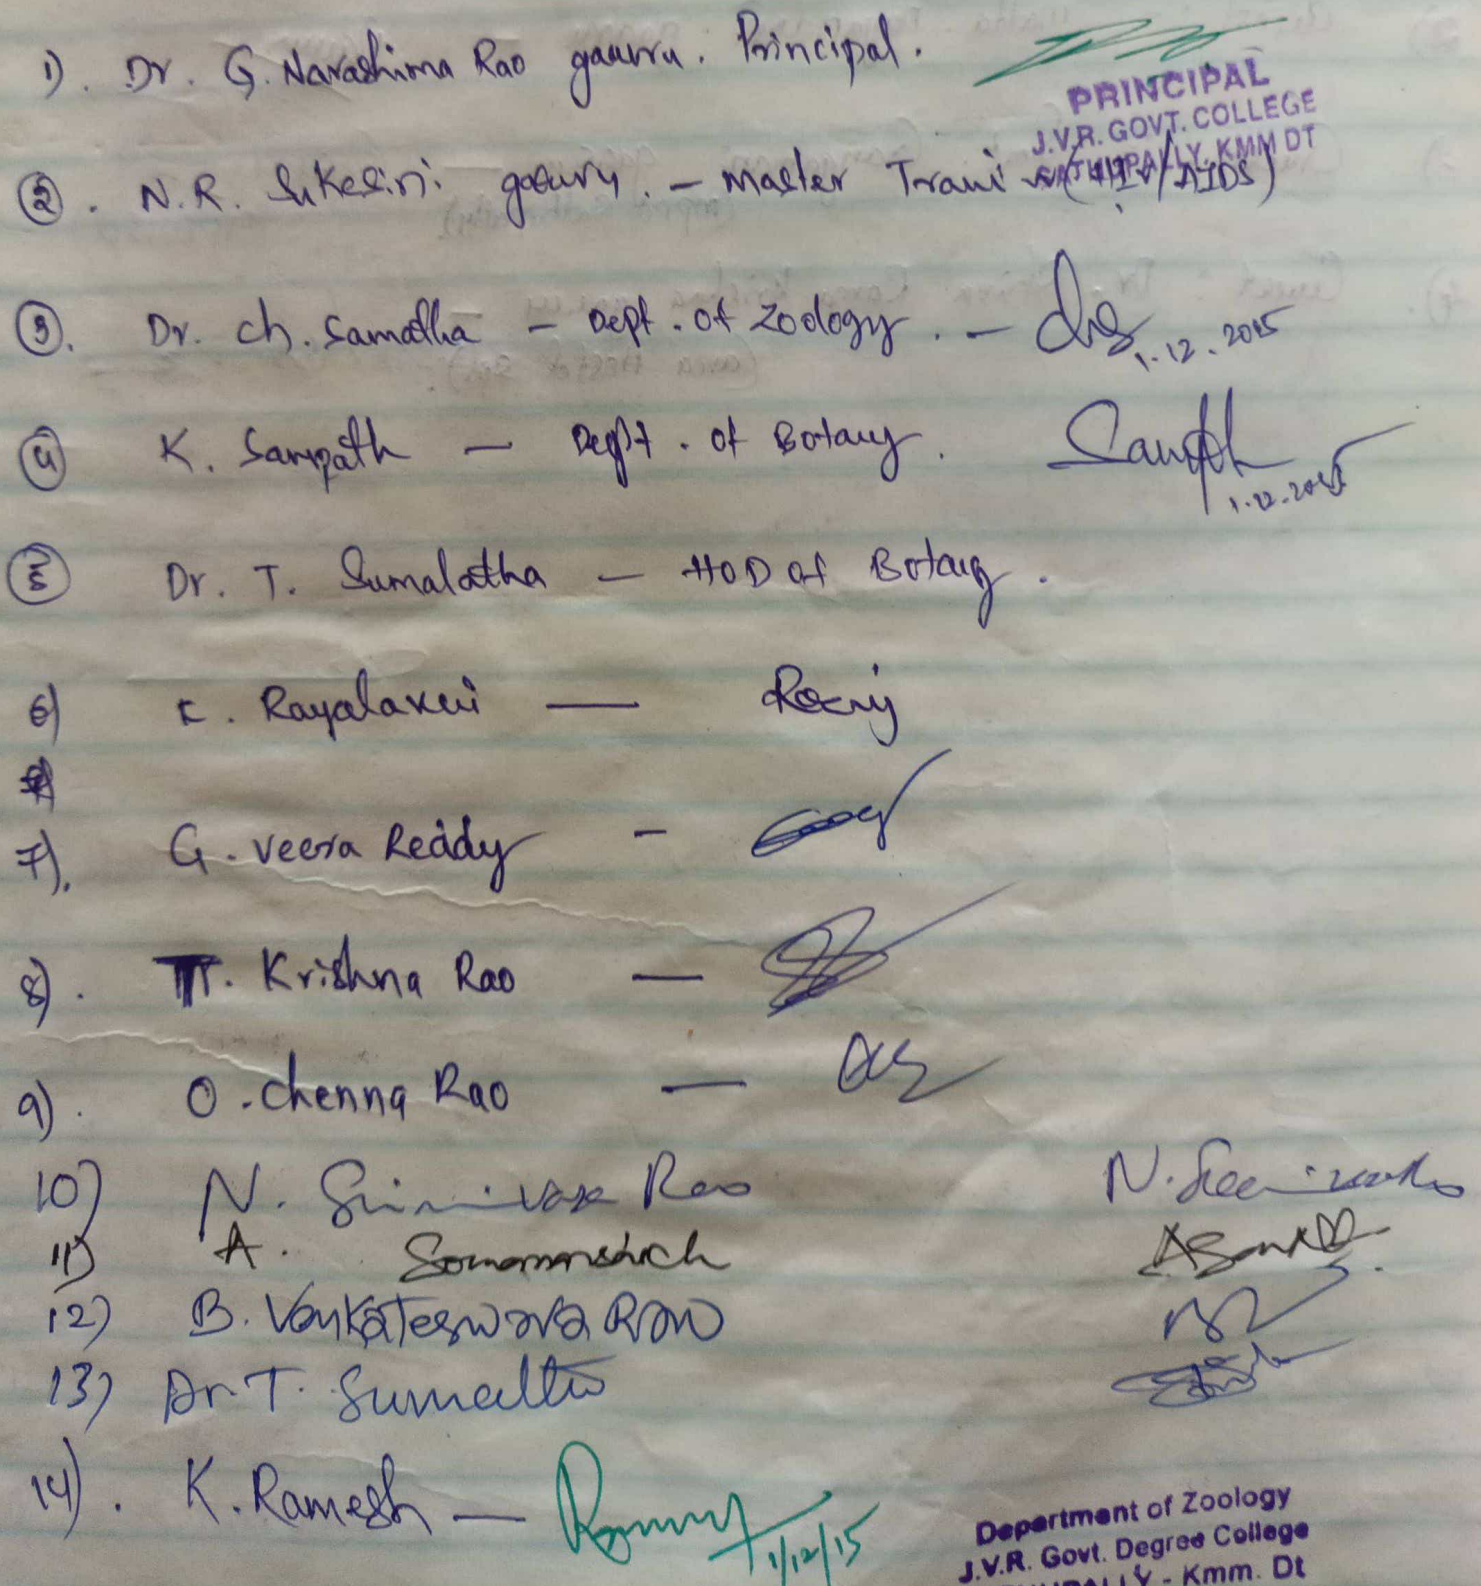 1). Dr. G. Narashima Rao gaauru. Principal.
PRINCIPAL
J.V.R. GOVT. COLLEGE
SATHUPALLY, KMM DT
2. N.R. Sukesini gaauru. - Master Traini (HIV/AIDS)
3. Dr. ch. Samatha - Dept. of Zoology. - 1.12.2015
4 K. Sampath - Dept. of Botany. Sampath 1.12.2015
5 Dr. T. Sumalatha - HOD of Botany.
6) K. Rayalaxmi -
7). G. Veera Reddy -
8). T. Krishna Rao -
9). O. Chenna Rao -
10) N. Srinivasa Rao N. Sreenivasa Rao
11) A.
12) B. Venkateswara Rao
13) Dr. T. Sumaltha
14). K. Ramesh - 1/12/15
Department of Zoology
J.V.R. Govt. Degree College
Kmm. Dt